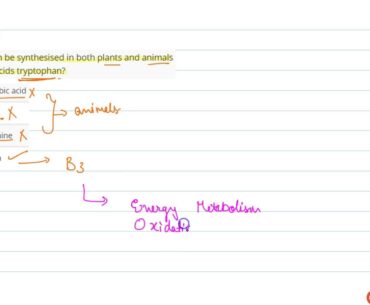 n be synthesised in both plants and animals
cids tryptophan?
bic acid X
X } → animals
nine X
✓ → B3
↳ Energy Metabolism
Oxidati